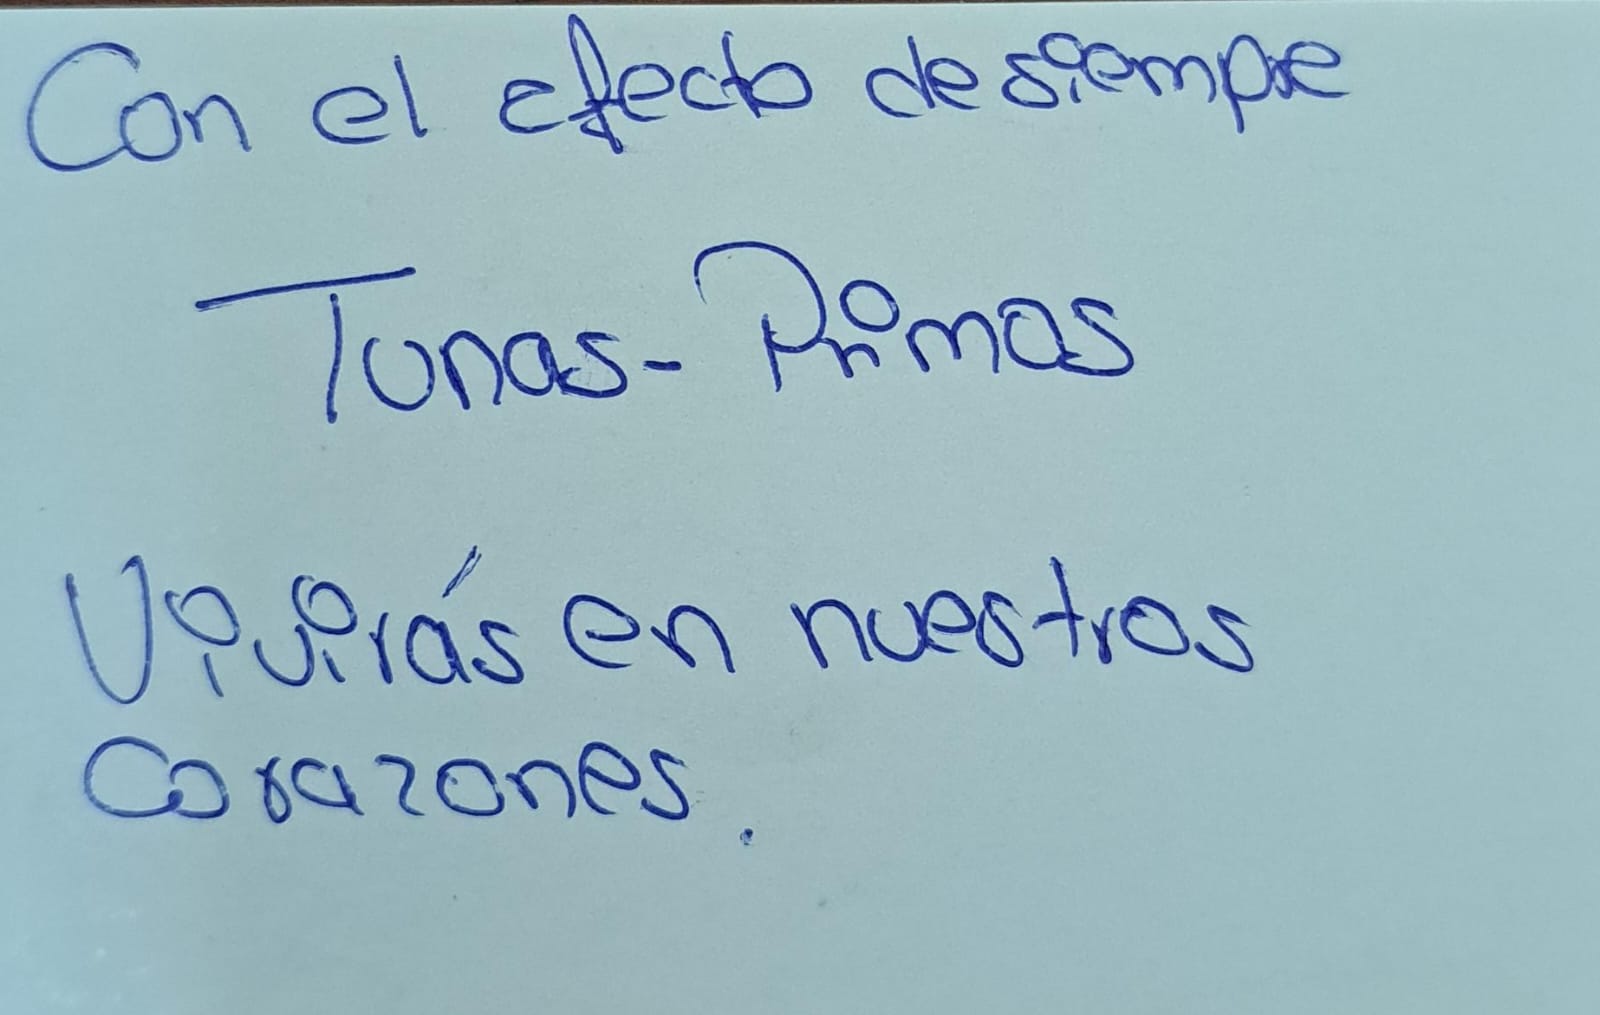 Con el efecto de siempre
Tunas-Primas
Vivirás en nuestros
corazones.